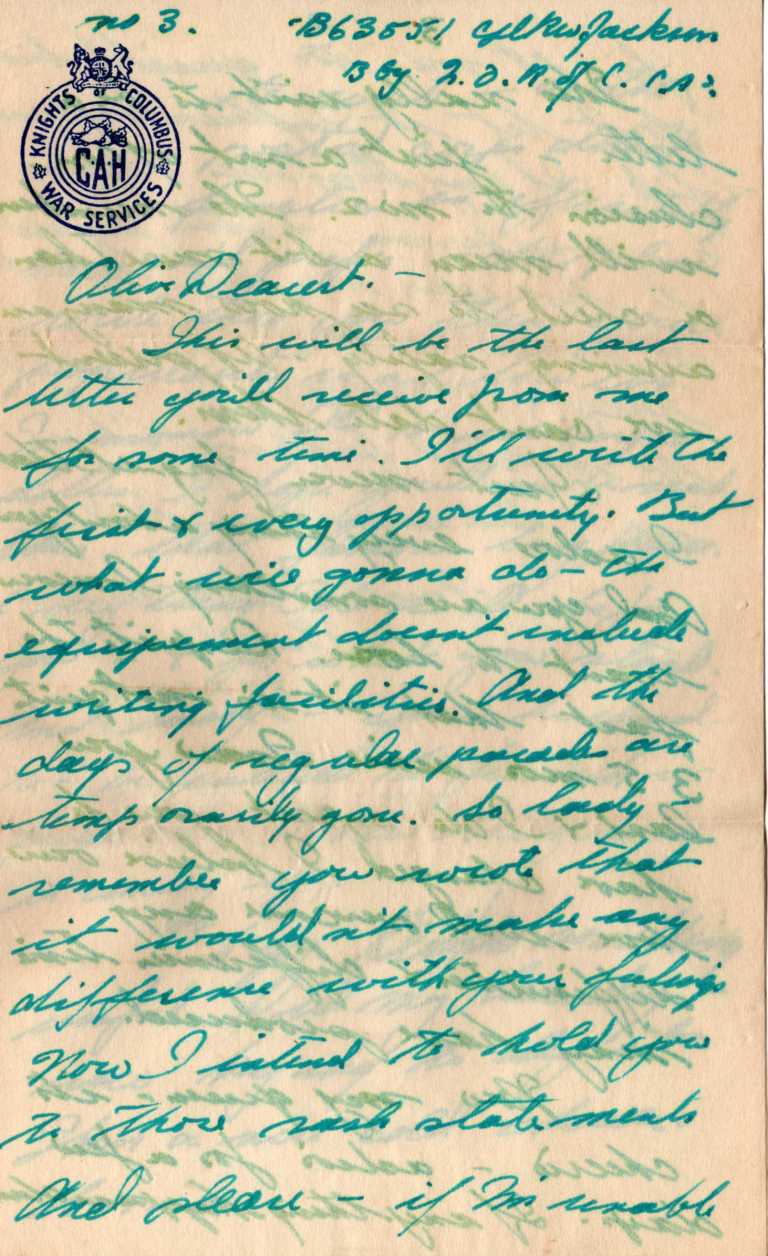 no 3. B63551 Jackson
B Bty 2. O. R of C. C.A.
KNIGHTS OF COLUMBUS
C·A·H
WAR SERVICES
Olive Dearest. —
This will be the last
letter you'll receive from me
for some time. I'll write the
first & every opportunity. But
what we're gonna do — the
equipement doesn't include
writing facilities. And the
days of regular parades are
temporarily gone. So lady —
remember you wrote that
it wouldn't make any
difference with your feelings
Now I intend to hold you
to those rash statements
And please — if I'm unable